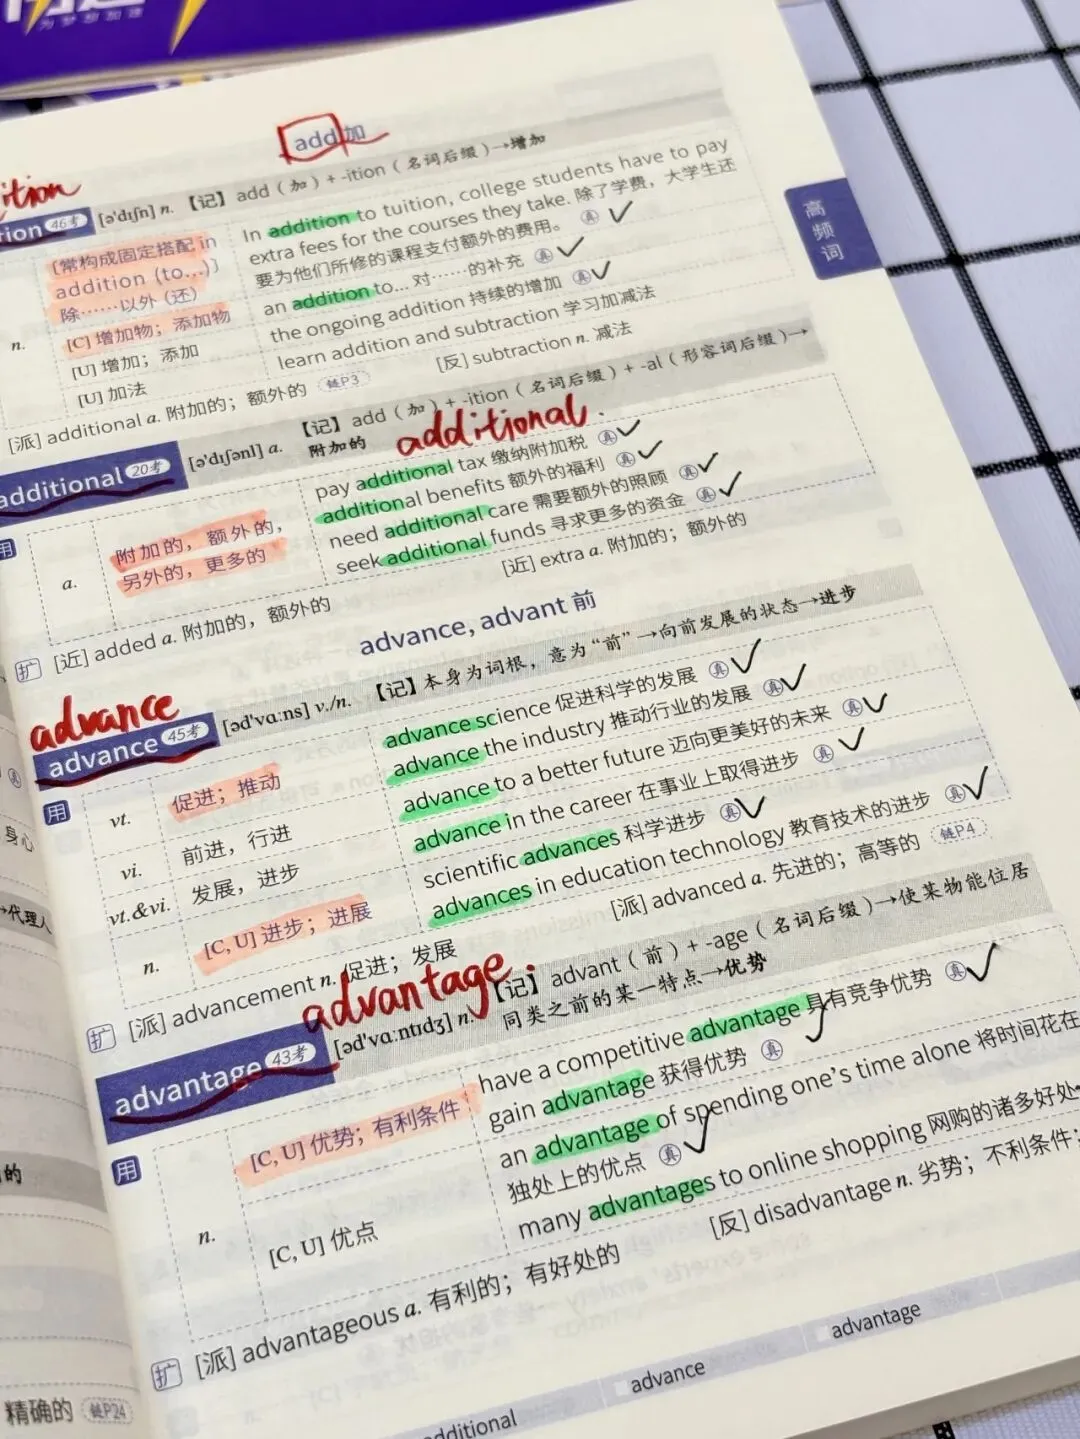 为梦想加速
add 加
ition
tion 46考 [ə'dɪʃn] n. 【记】add（加）+ -ition（名词后缀）→增加
高频词
[常构成固定搭配 in addition (to...)] 除……以外（还）
In addition to tuition, college students have to pay
extra fees for the courses they take. 除了学费，大学生还
要为他们所修的课程支付额外的费用。 真
n.
[C] 增加物；添加物
an addition to... 对……的补充 真
[U] 增加；添加
the ongoing addition 持续的增加 真
[U] 加法
learn addition and subtraction 学习加减法
[派] additional a. 附加的；额外的 链P3
[反] subtraction n. 减法
additional 20考 [ə'dɪʃənl] a. 【记】add（加）+ -ition（名词后缀）+ -al（形容词后缀）→
附加的
additional.
用
a.
附加的，额外的，
另外的，更多的
pay additional tax 缴纳附加税 真
additional benefits 额外的福利 真
need additional care 需要额外的照顾 真
seek additional funds 寻求更多的资金 真
扩 [近] added a. 附加的，额外的
[近] extra a. 附加的；额外的
advance, advant 前
advance
advance 45考 [əd'vɑːns] v./n. 【记】本身为词根，意为“前”→向前发展的状态→进步
用
vt. 促进；推动
advance science 促进科学的发展 真
advance the industry 推动行业的发展 真
vi. 前进，行进
advance to a better future 迈向更美好的未来 真
vt.&vi. 发展，进步
advance in the career 在事业上取得进步 真
n. [C, U] 进步；进展
scientific advances 科学进步 真
advances in education technology 教育技术的进步 真
扩 [派] advancement n. 促进；发展
[派] advanced a. 先进的；高等的 链P4
advantage.
advantage 43考 [əd'vɑːntɪdʒ] n. 【记】advant（前）+ -age（名词后缀）→使某物能位居
同类之前的某一特点→优势
用
n.
[C, U] 优势；有利条件
have a competitive advantage 具有竞争优势 真
gain advantage 获得优势 真
[C, U] 优点
an advantage of spending one's time alone 将时间花在
独处上的优点 真
many advantages to online shopping 网购的诸多好处
扩 [派] advantageous a. 有利的；有好处的
[反] disadvantage n. 劣势；不利条件；
dditional
advance
advantage
真
身心
→代理人
的
精确的 链P24